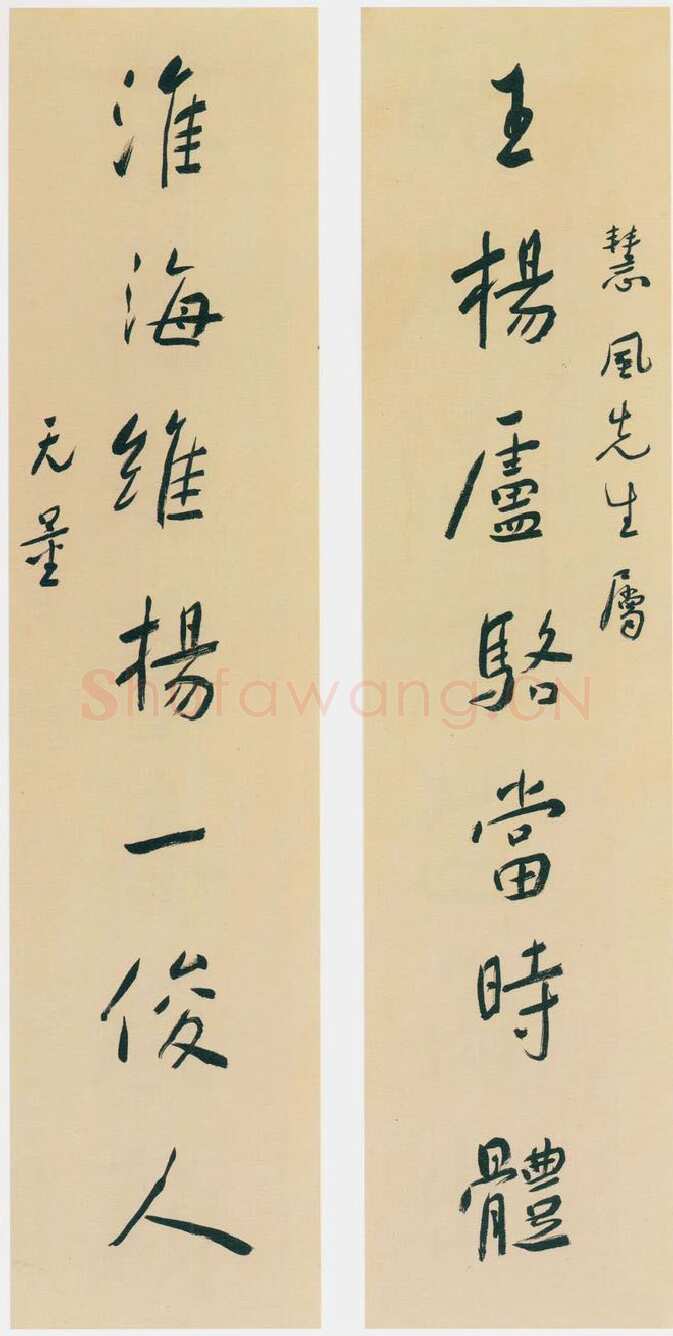 慧風先生屬
王楊盧駱當時體
淮海維楊一俊人
无量
Shufawang.CN